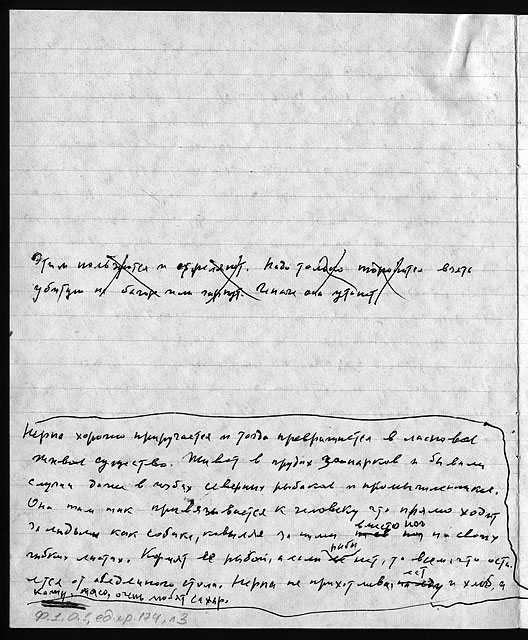 Этим пользуются и стреляют. Надо только торопится взять
убитую на багор или гарпун. Иначе она утонет
Нерпа хорошо приручается и тогда превращается в ласковое
живое существо. Живет в прудах зоопарков и бывали
случаи даже в избах северных рыбаков и промышленников.
Она там так привязывается к человеку что прямо ходит
за людьми как собака, ковыляя за ними вместо ног на своих
гибких ластах. Кормят её рыбой, а если рыбы нет, то всем, что оста
лется от обеденного стола. Нерпа не прихотлива, ест и хлеб, и
кашу, мясо, очень любит сахар.
Ф. 1, О. 1, ед. хр. 174, л. 3